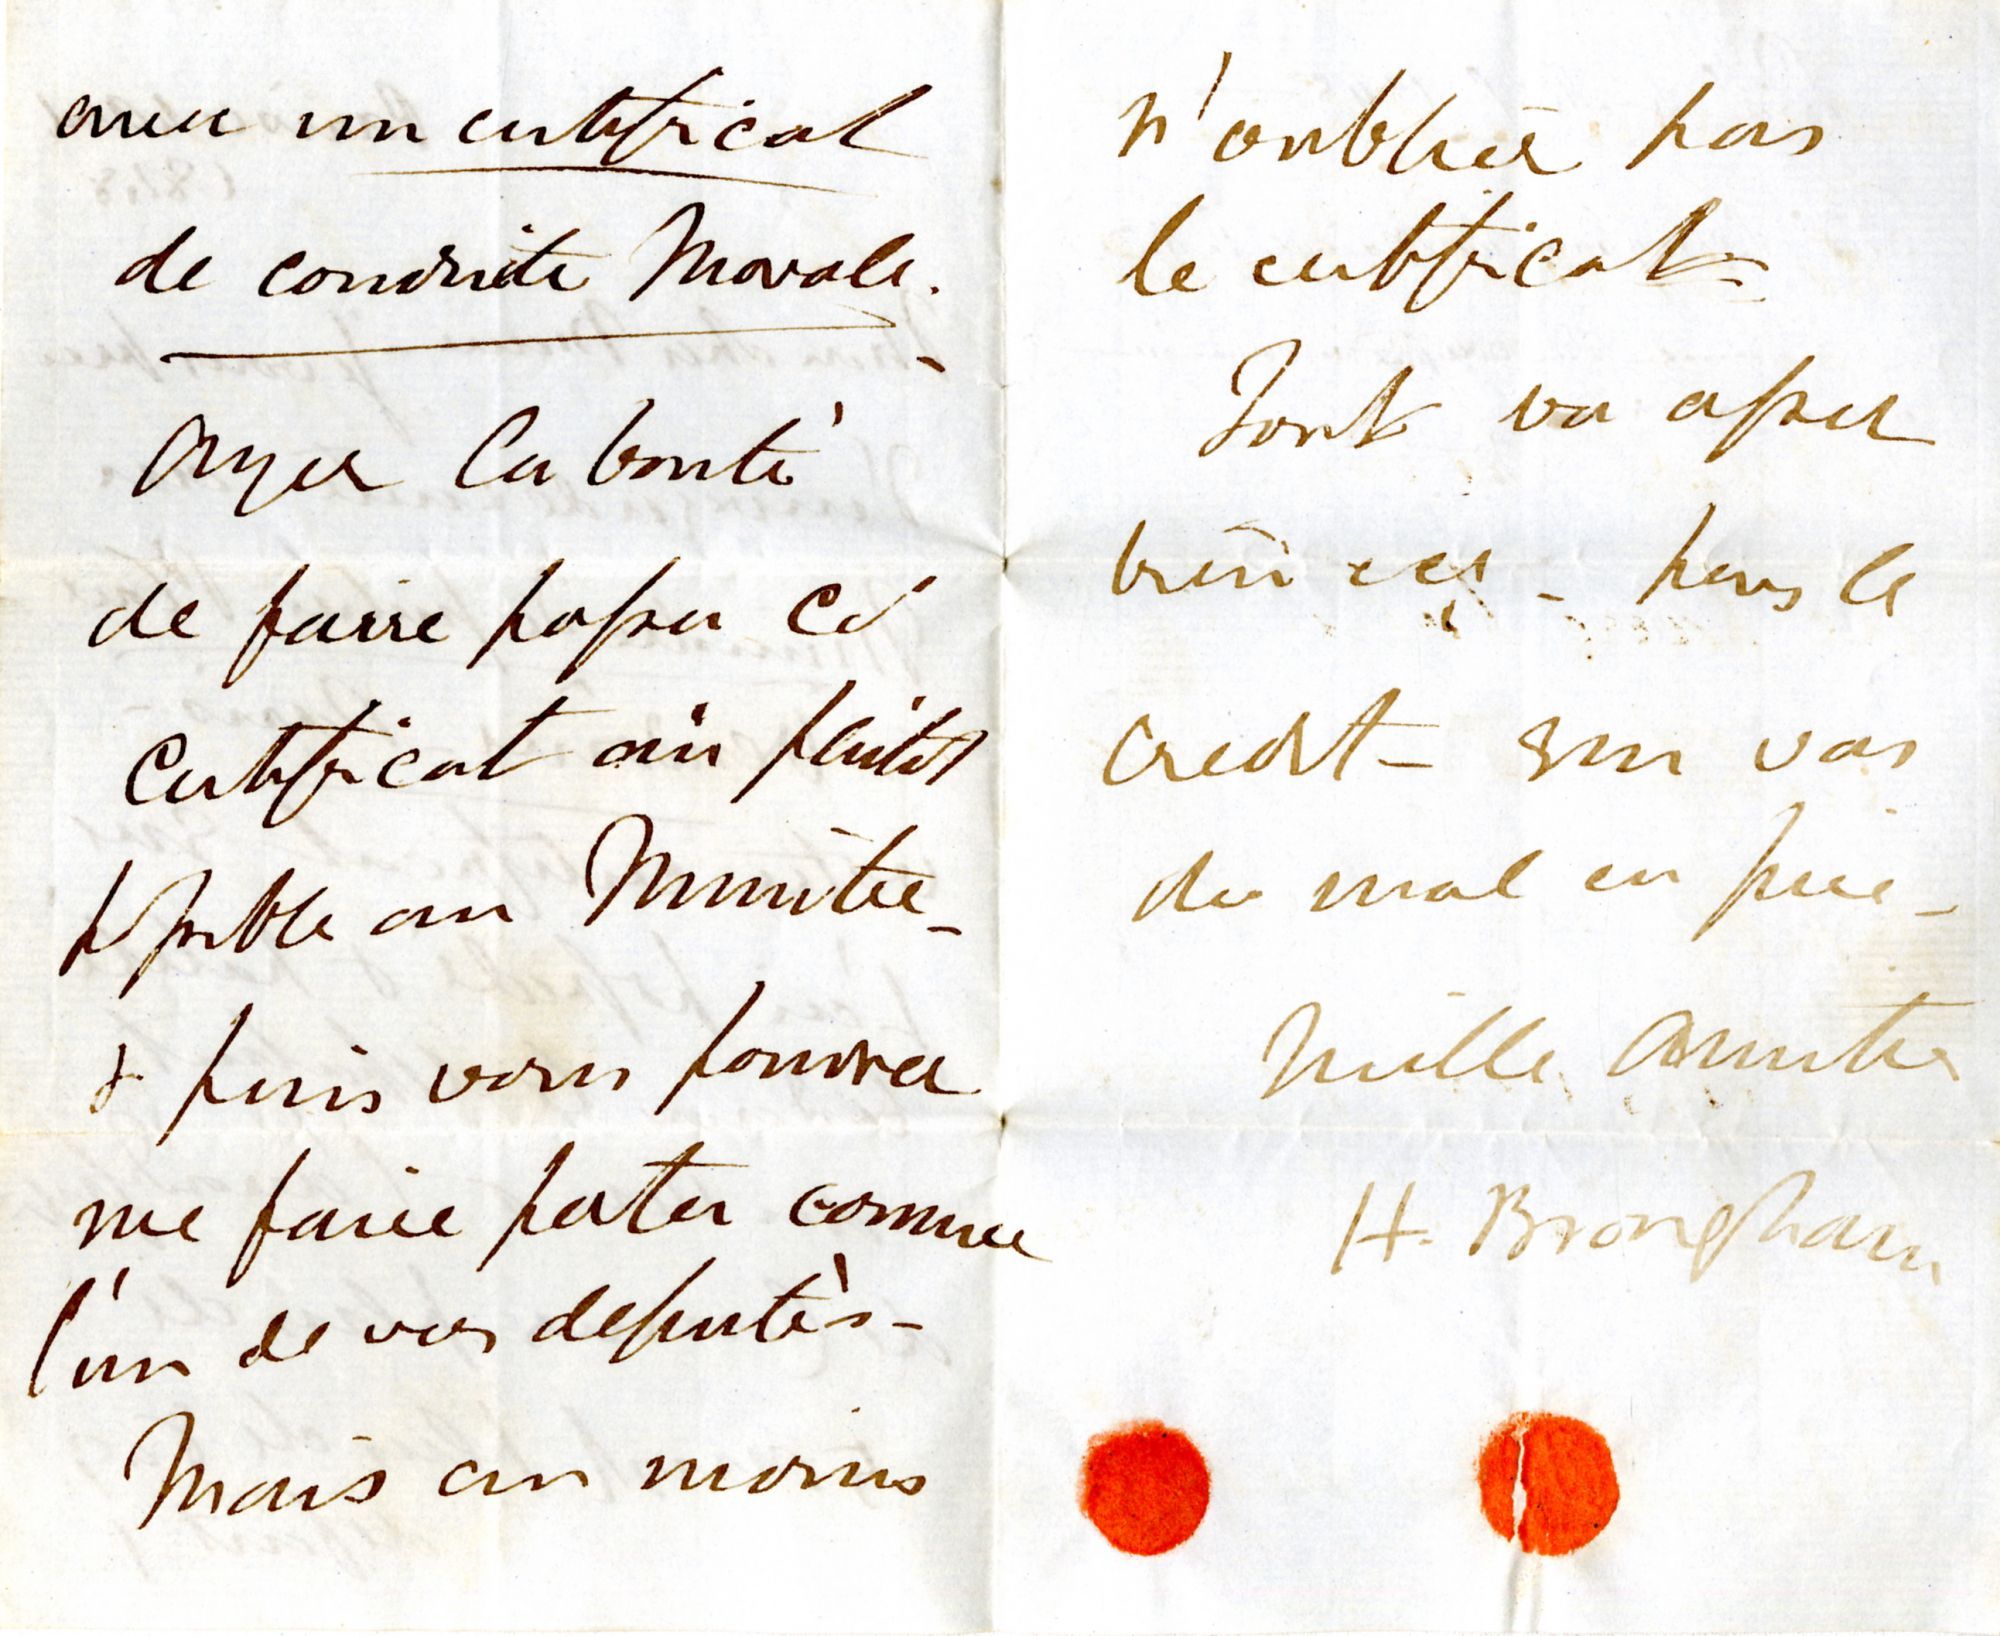 avec un certificat
de conduite Morale.
Ayez la bonté
de faire passer ce
certificat au plutot
possible au Ministre -
& puis vous pourrez
me faire porter comme
l'un de vos deputès -
Mais au moins
n'oubliez pas
le certificat -
Tout va assez
bien ici - pour le
credit - on va
de mal en pire -
Mille amitiés
H. Brougham